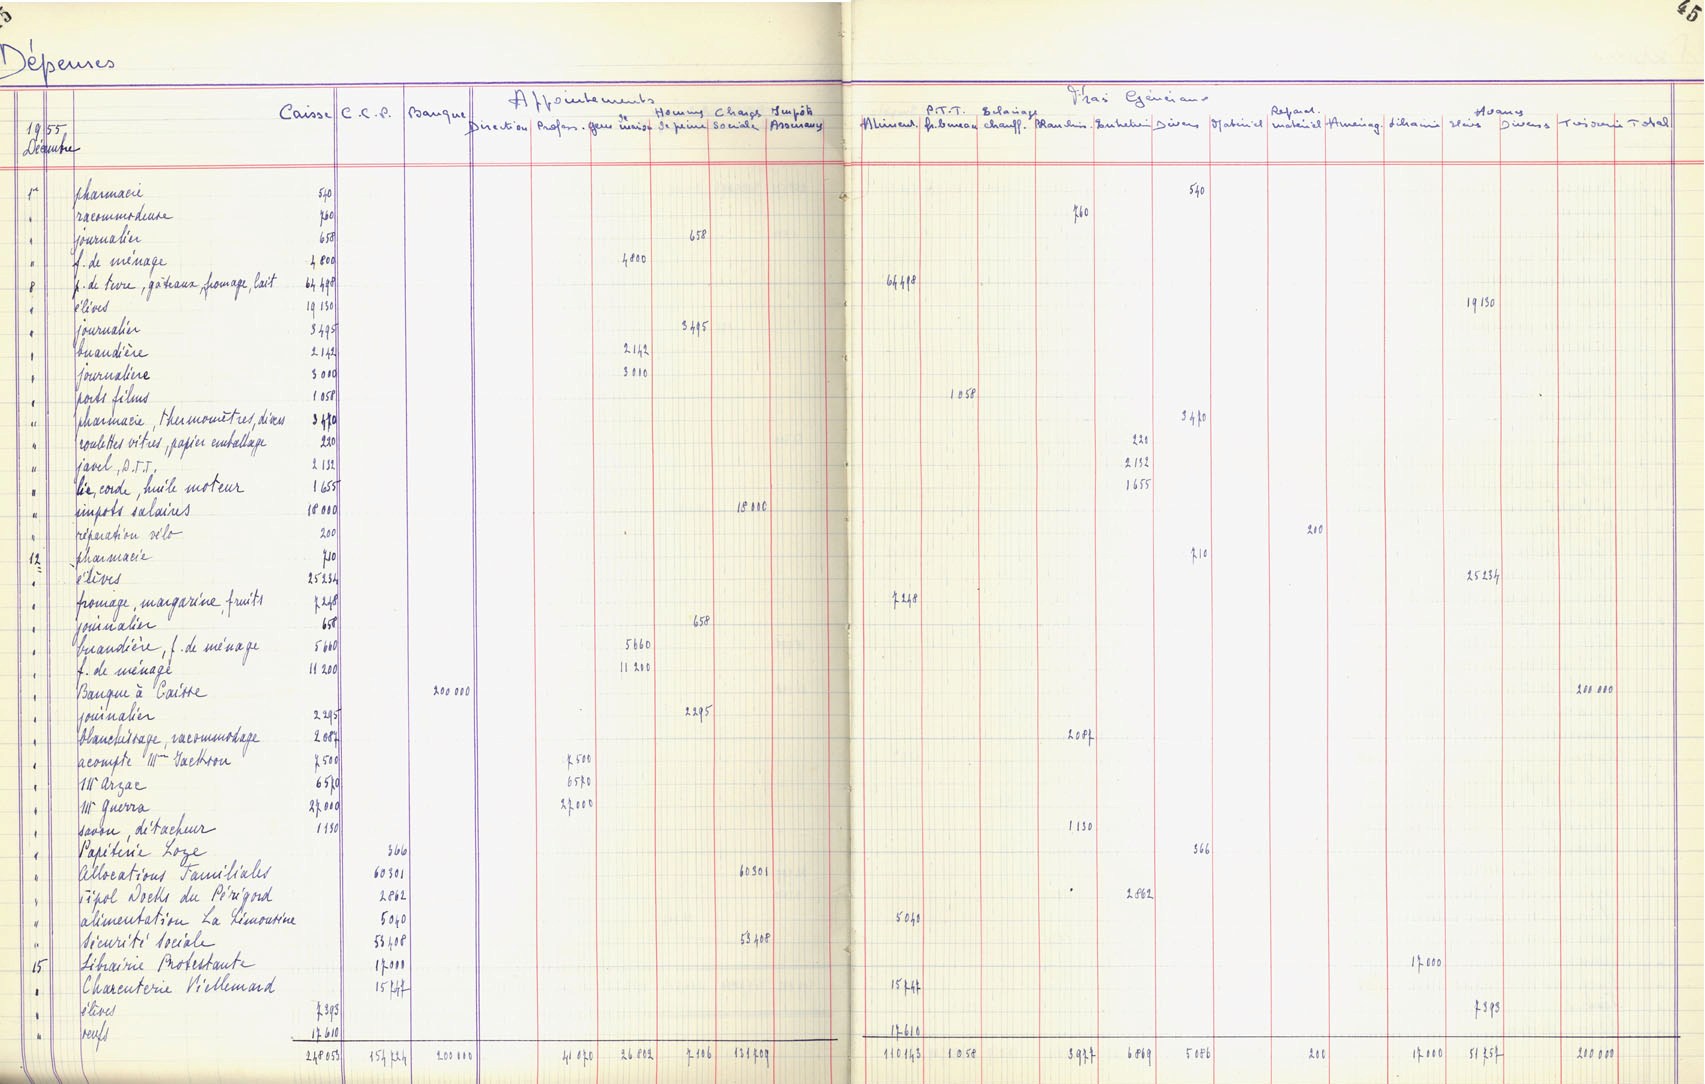 5
45
Dépenses
Appointements
Frais Généraux
Caisse C.C.P. Banque Direction Profess. Gens de maison Hommes de peine Charges sociales Impôts Assurances
Aliment. P.T.T. fr. bureau Eclairage chauff. Blanchis. Entretien Divers Matériel Réparat. matériel Aménag. Librairie Avances élèves Divers Trésorerie Total
1955
Décembre
1er pharmacie 540 540
" racommodeuse 760 760
" journalier 658 658
" f. de ménage 4800 4800
8 p. de terre, gâteaux, fromage, lait 64498 64498
" élèves 19130 19130
" journalier 3495 3495
" buandière 2142 2142
" journalière 3000 3000
" ports films 1058 1058
" pharmacie, thermomètres, divers 3470 3470
" roulettes vitres, papier emballage 220 220
" javel, D.T.T. 2132 2132
" lie, corde, huile moteur 1655 1655
" impots salaires 18000 18000
" réparation vélo 200 200
12 pharmacie 710 710
" élèves 25234 25234
" fromage, margarine, fruits 7248 7248
" journalier 658 658
" buandière, f. de ménage 5660 5660
" f. de ménage 11200 11200
" Banque à Caisse 200000 200000
" journalier 2295 2295
" blanchissage, racommodage 2087 2087
" acompte Mme Jackson 7500 7500
" Mr Arzac 6570 6570
" Mr Guerra 27000 27000
" savon, détacheur 1130 1130
" Papèterie Loze 366 366
" Allocations Familiales 60301 60301
" Docks du Périgord 2862 2862
" alimentation La Limousine 5040 5040
" Sécurité Sociale 53408 53408
15 Librairie Protestante 17000 17000
" Charcuterie Viellemard 15747 15747
" élèves 7393 7393
" oeufs 17610 17610
248053 154724 200000 41070 26802 7106 131709 110143 1058 3977 6869 5086 200 17000 51757 200000